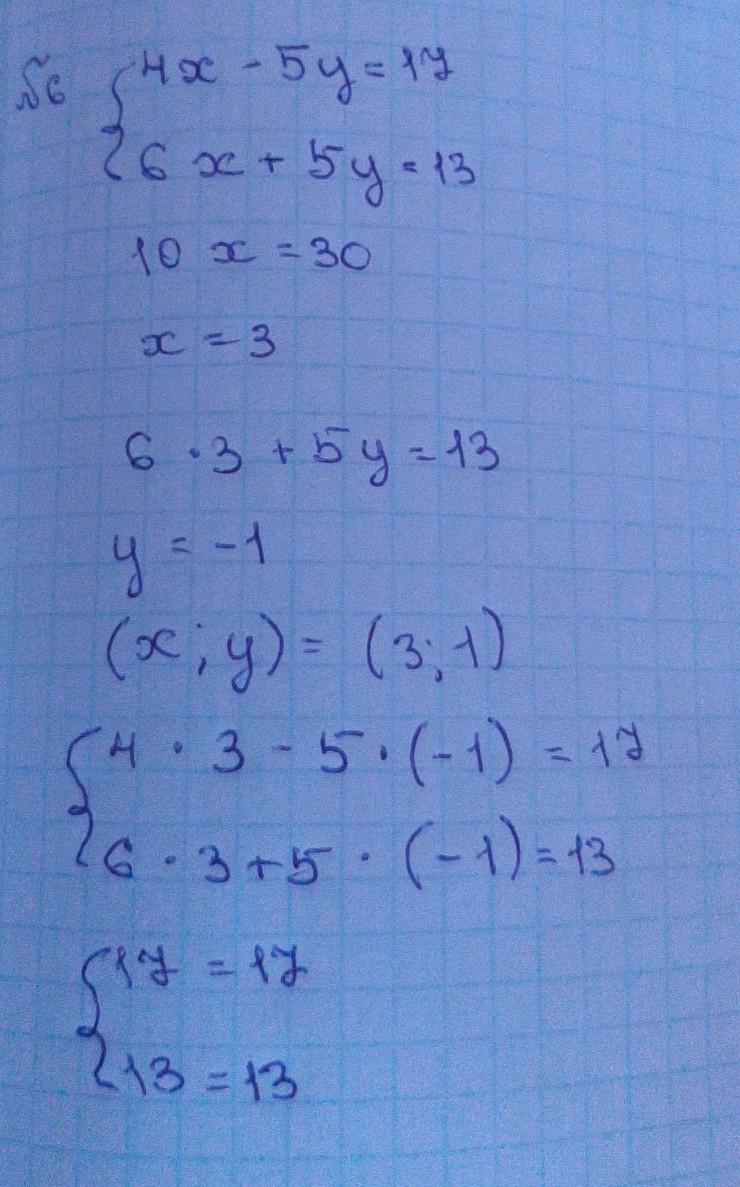 №6 {4x - 5y = 17
6x + 5y = 13
10x = 30
x = 3
6 · 3 + 5y = 13
y = -1
(x; y) = (3; 1)
{4 · 3 - 5 · (-1) = 17
6 · 3 + 5 · (-1) = 13
{17 = 17
13 = 13